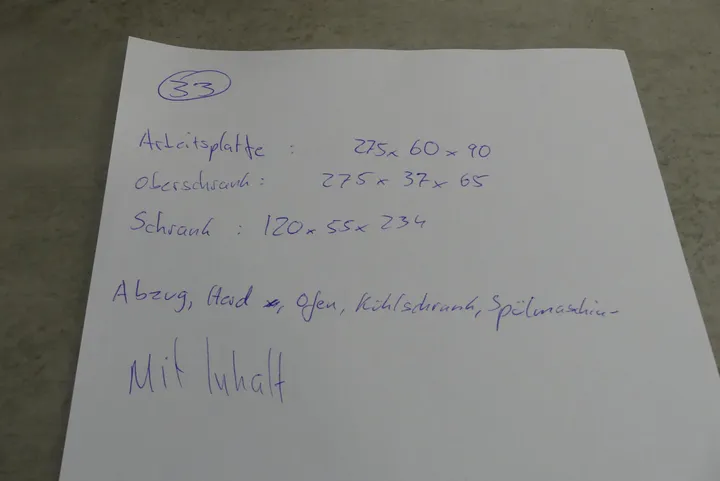 33
Arbeitsplatte : 275 x 60 x 90
Oberschrank : 275 x 37 x 65
Schrank : 120 x 55 x 234
Abzug, Herd , Ofen, Kühlschrank, Spülmaschine
Mit Inhalt